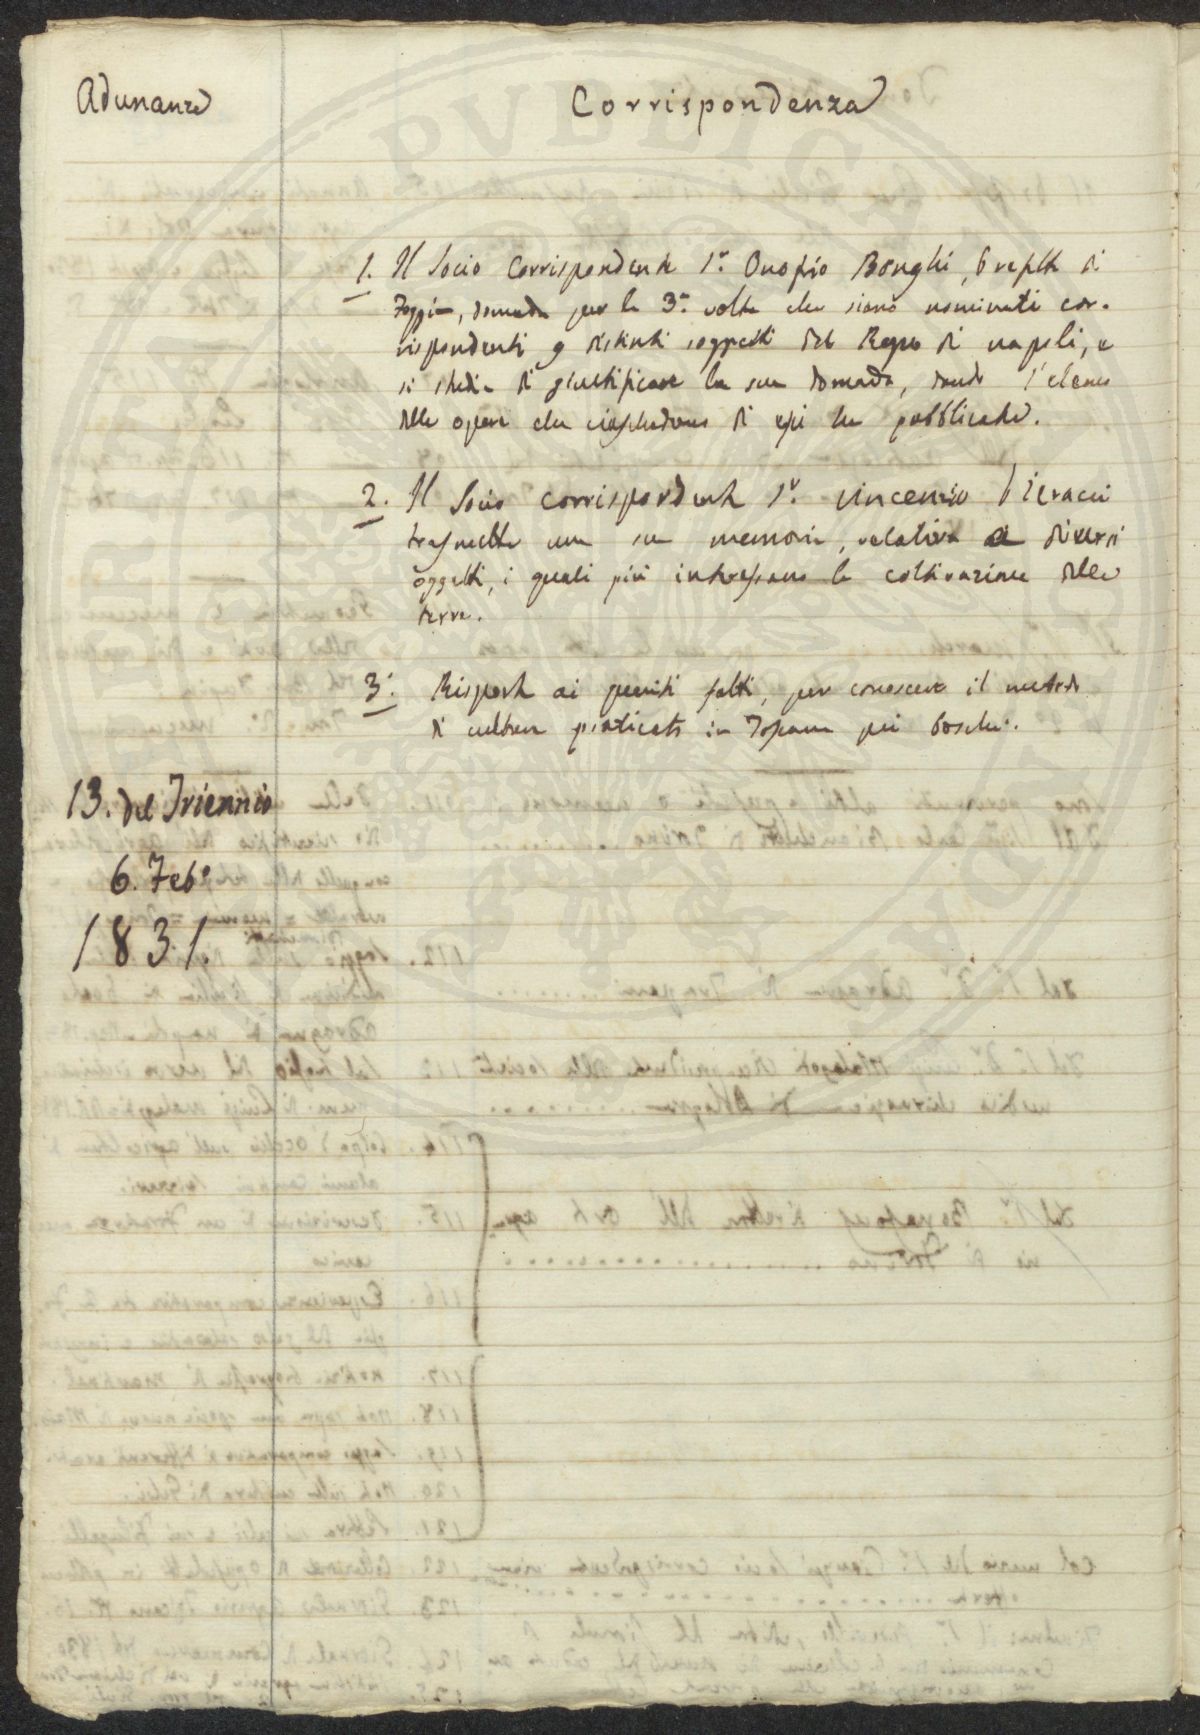 Adunanze
Corrispondenza
1. Il Socio Corrispondente Sr. Onofrio Bonghi, di
Foggia, domanda per la 3a volta che siano nominati cor-
rispondenti 9 distinti soggetti del Regno di napoli, e
si studia di giustificare la sua domanda, dando l'elenco
delle opere che ciascheduno di essi ha pubblicate.
2. Il Socio corrispondente Sr. vincenzio
trasmette una sua memoria, relativa a diversi
oggetti, i quali più interessano la coltivazione delle
terre.
3. Risposte ai quesiti fatti, per conoscere il metodo
di cultura praticato in Toscana pei boschi.
13. del Triennio
6. Febo
1831.